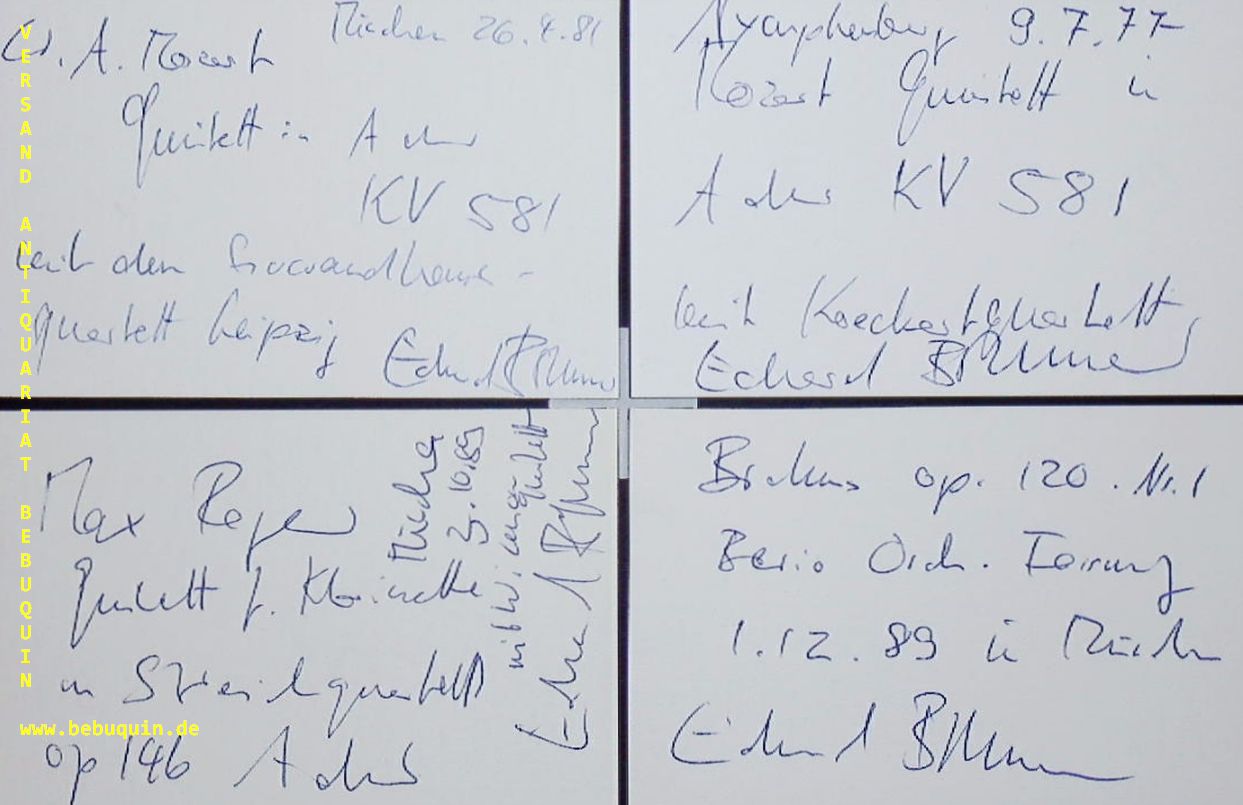 W. A. Mozart
München 26.4.81
Quintett in A dur
KV 581
mit dem Gewandhaus-
quartett Leipzig
Eduard Brunner
Nymphenburg 9.7.77
Mozart Quintett in
A dur KV 581
mit Koeckertquartett
Eduard Brunner
Max Reger
Quintett f. Klarinette
u Streichquartett
op 146 A dur
München
10.89
mit
quartett
Eduard Brunner
Brahms op. 120. Nr. 1
Berio Orch. Fassung
1.12.89 in München
Eduard Brunner
VERSAND ANTIQUARIAT BEBUQUIN
www.bebuquin.de